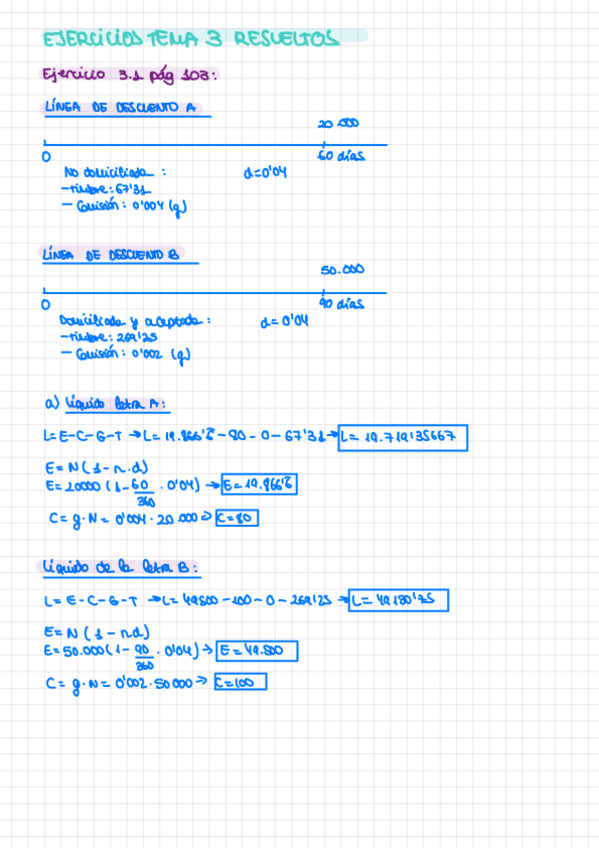 EJERCICIOS TEMA 3 RESUELTOS
Ejercicio 3.1 pág 103:
LÍNEA DE DESCUENTO A
20.000
0
60 días
No domiciliada :
d=0'04
-Timbre: 67'31
- Comisión: 0'004 (g)
LÍNEA DE DESCUENTO B
50.000
0
90 días
Domiciliada y aceptada :
d=0'04
-Timbre: 269'25
- Comisión: 0'002 (g)
a) Líquido letra A:
L=E-C-G-T → L= 19.866'6̂ - 80 - 0 - 67'31 → L= 19.719'35667
E=N(1-n.d)
E=20000 (1-60/360 . 0'04) → E=19.866'6̂
C=g.N= 0'004 . 20.000 => C=80
Líquido de la letra B:
L= E-C-G-T → L= 49500 - 100 - 0 - 269'25 → L= 49130'75
E=N(1-n.d)
E=50.000(1-90/360 . 0'04) → E=49.500
C= g.N= 0'002 . 50000 => C=100